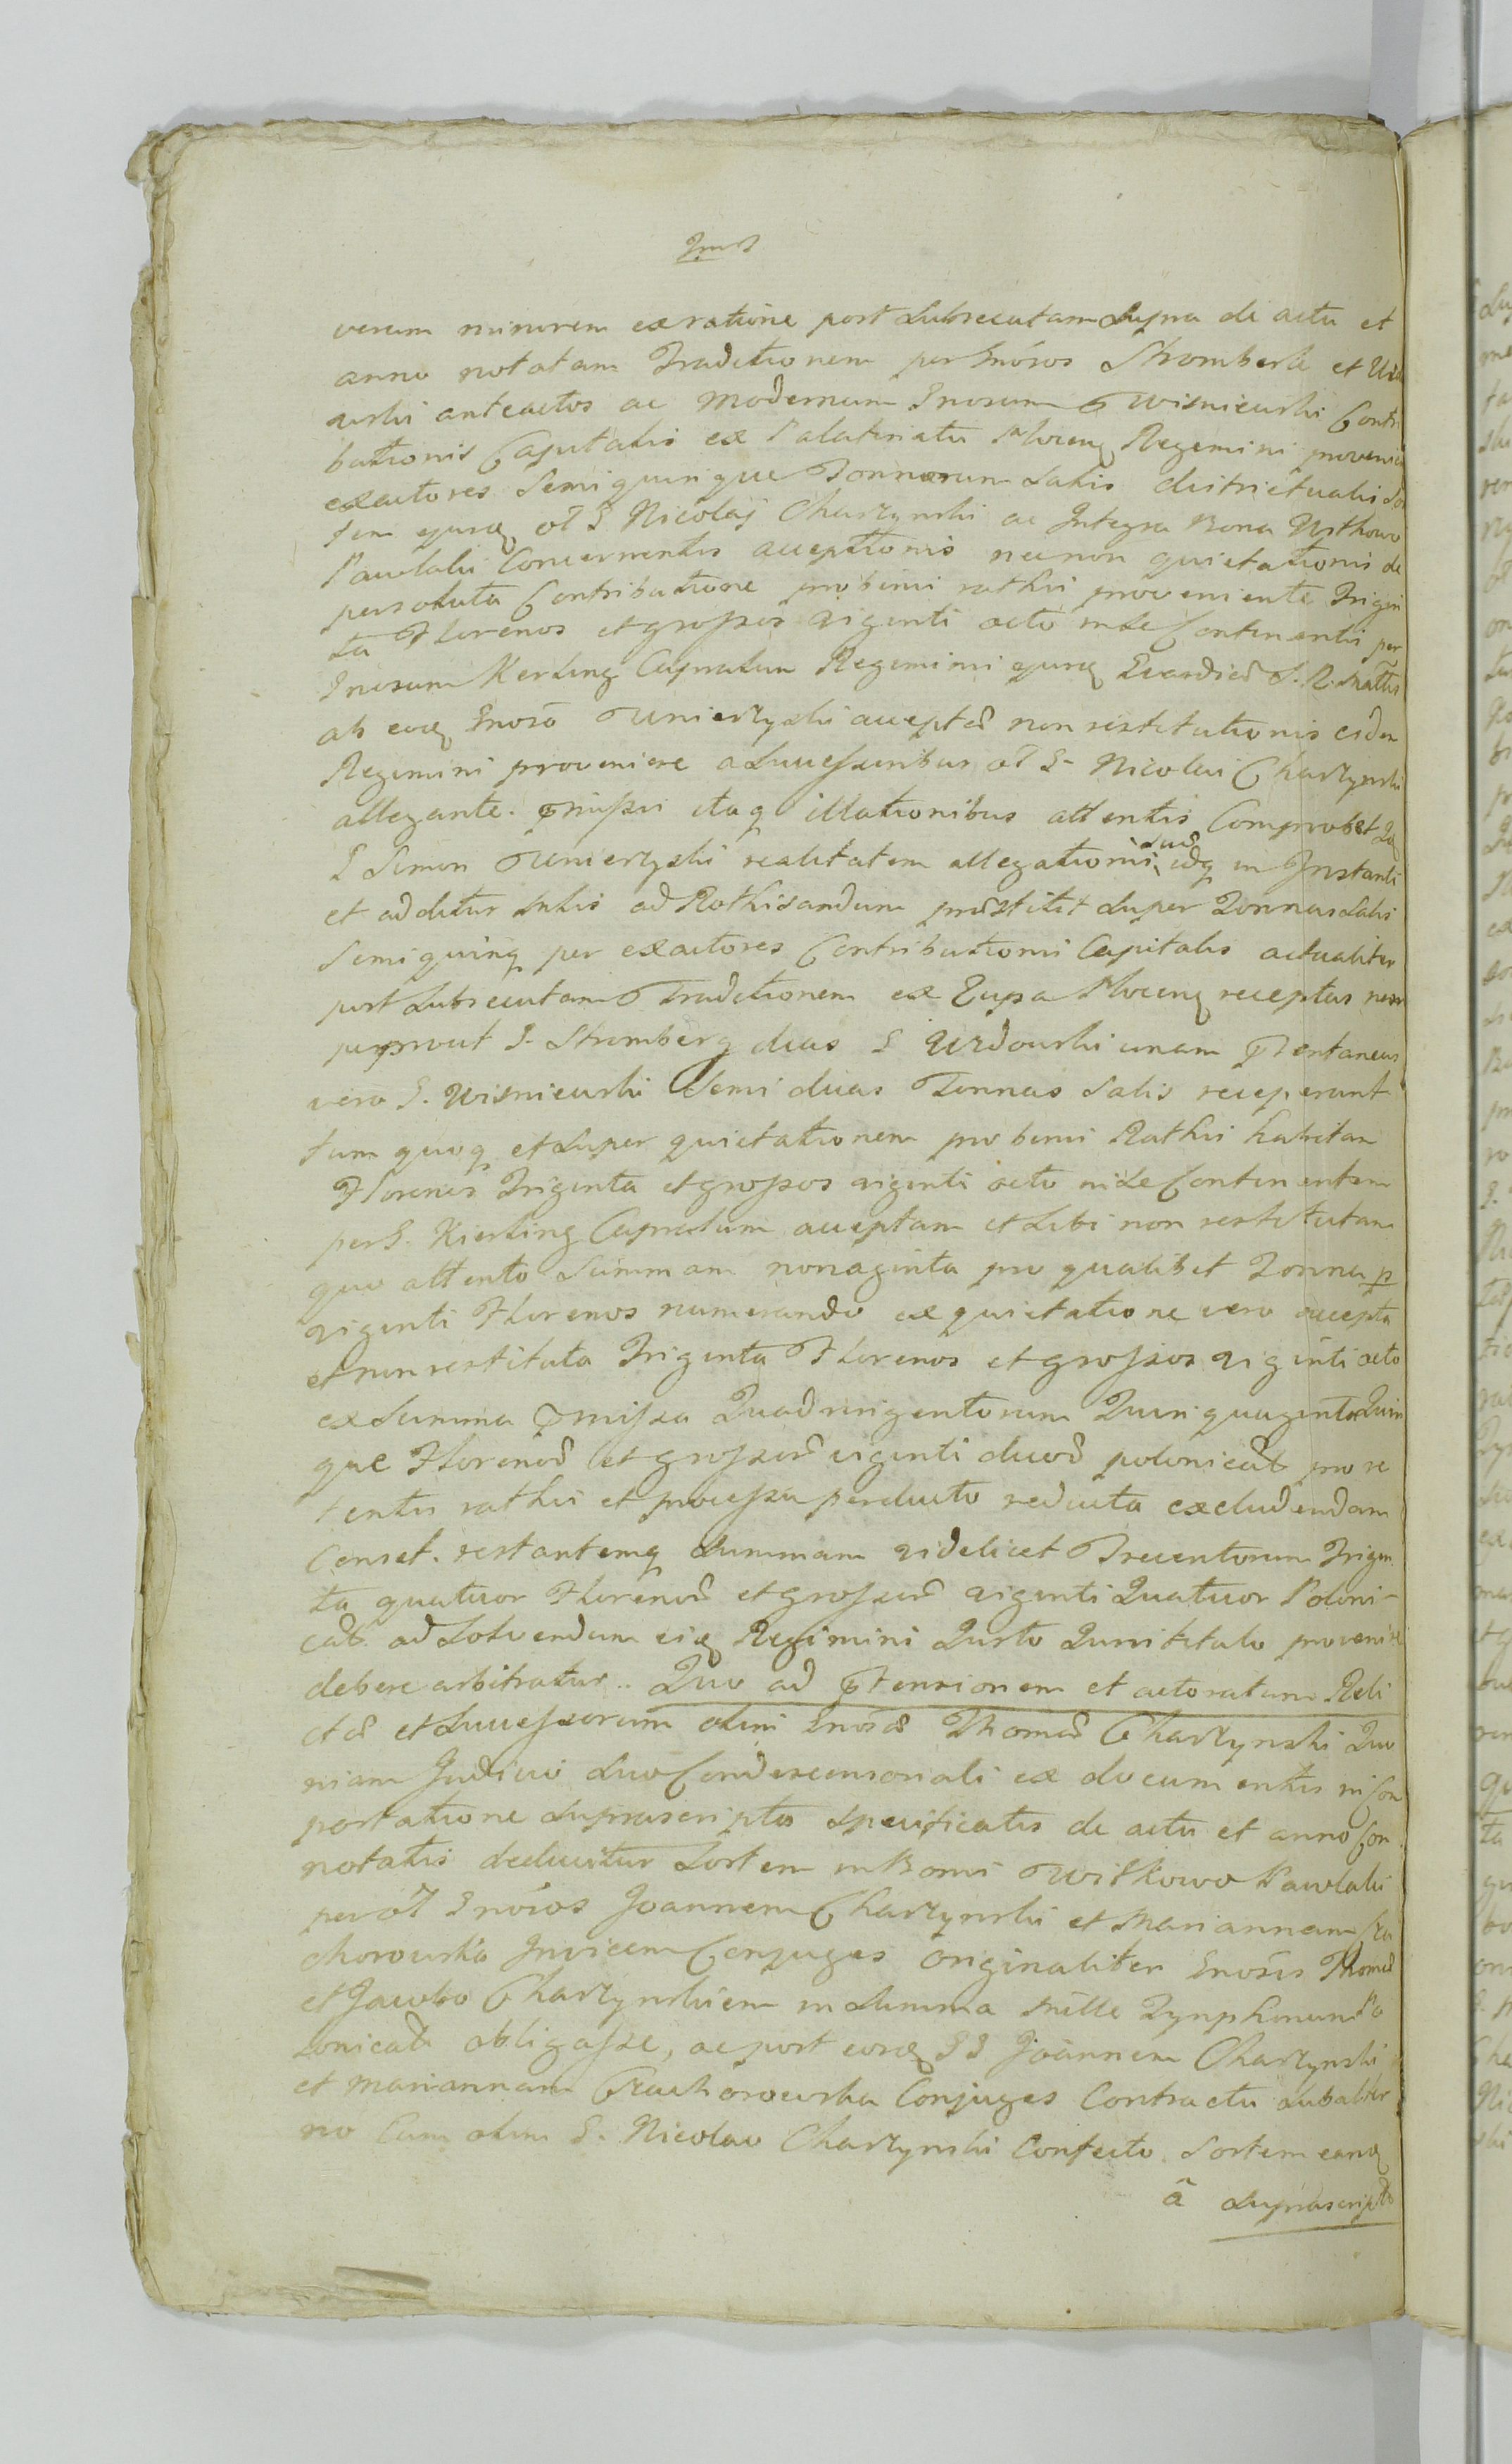 verum minorem ex ratione post subsecutam supra de actu et
anno notatam Traditionem per Gnosos Stromberk et
urski anteactos ac modernum Gnosum Wisnieuski Contri
butionis Capitalis ex Palatinatu Plocenq Regimini
exactores Semiquinque Tonnarum Salis districtualis
tem ejusq ol G Nicolaj Charzynski ac Integra Bona Witkowo
Pawlaki Concernentis acceptionis necnon quietationis de
persoluta Contributione pro bini rathis proveniente Trigin
ta Florenos et grossos viginti octo in se Continentis per
Gnosum Kerling Capralem Regimini ejusq
ab eoq Gnoso Unierzyski accepta non restitutionis eidem
Regimini provenire a Successoribus ol G. Nicolai Charzynski
allegante. Pmissis itaq illationibus attentis Comprobet
G Simon Unierzyski realitatem allegationis suæ, idq in Instanti
et additur satis ad Rothisandum præstitit super Tonnas Salis
Semiquinq per exactores Contributionis Capitalis actualiter
post subsecutam Traditionem ex Zupa Plocenq receptas nem
pe prout G. Stromberg duas G Urdouski unam Ptentaneus
vero G. Wisnieuski Semi duas Tonnas Salis receperunt
tum quoq et super quietationem pro bini Rathis habitam
Florenos Triginta et grossos viginti octo in se Continentem
per G. Kierling Capralum acceptam et sibi non restitutam
quo attento Summam nonaginta pro qualibet Tonna p
viginti Florenos numerando ex quietatione vero accepta
et non restituta Triginta Florenos et grossos viginti octo
ex Summa Pmissa Quadringentorum Quinquaginta Quin
que Florenor et grossor viginti duor polonical pro re
tentis rathis et processu perducto reducta excludendam
Censet. restantemq Summam videlicet Trecentorum Trigin
ta quatuor Florenor et grossor viginti Quatuor Poloni-
cal. ad Solvendum eiq Regimini Justo Juris titulo provenire
debere arbitratur. Quo ad Ptensionem et actoratum Reli
ctæ et Successorum olim Gnosi Thomæ Charzynski Quo
niam Judicio suo Condescensoriali ex documentis in Com
portatione suprascriptis specificatis de actu et anno Con
notatis deducitur Sortem in Bonis Witkowo Pawlaki
per ol Gnosos Joannem Charzynski et Mariannam Cza
chorouska Invicem Conjuges originaliter Gnosis Thomæ
et Jacobo Charzynskiem in Summa Mille Tynphorum Po
lonical obligasse, ac post eosq GG Joannem Charzynski
et Mariannam Czachorouska Conjuges Contractu subalter
no Cum olim G. Nicolao Charzynski Confecto Sortem eanq
â suprascripto